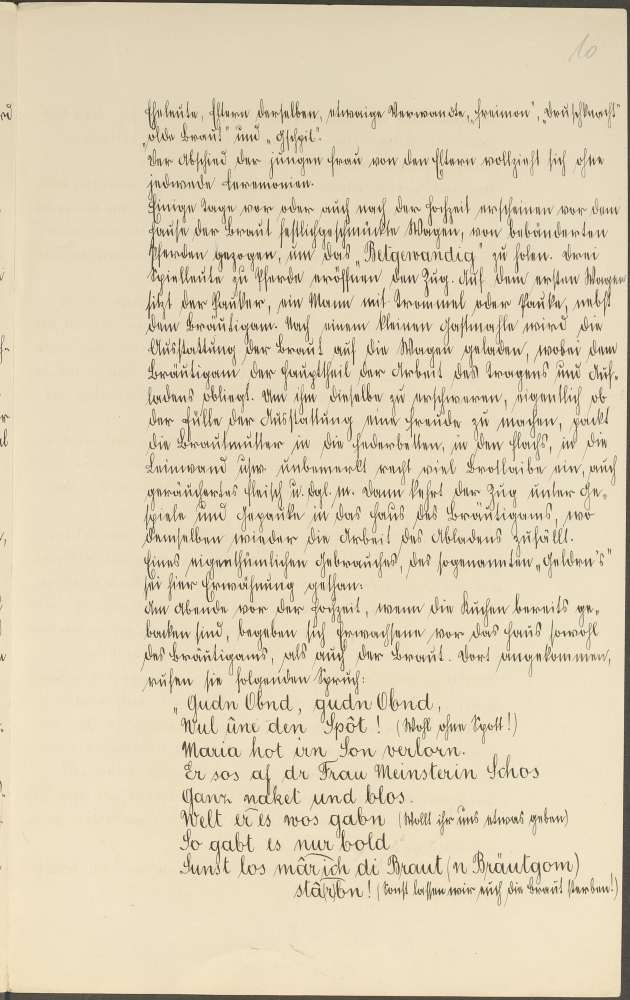 10
Eheleute, Eltern derselben, etwaige Verwandte, „Freimon“, „Druschknacht“
„olde Braut“ und „Gschpil“.
Der Abschied der jungen Frau von den Eltern vollzieht sich ohne
jedwede Ceremonien.
Einige Tage vor oder auch nach der Hochzeit erscheinen vor dem
Hause der Braut festlichgeschmückte Wagen, von bebänderten
Pferden gezogen, um das „Betgewandig“ zu holen. Drei
Spielleute zu Pferde eröffnen den Zug. Auf dem ersten Wagen
sitzt der Pauker, ein Mann mit Trommel oder Pauke, nebst
dem Bräutigam. Nach einem kleinen Gastmahle wird die
Ausstattung der Braut auf die Wagen geladen, wobei dem
Bräutigam der Haupttheil der Arbeit des Tragens und Auf-
ladens obliegt. Um ihm dieselbe zu erschweren, eigentlich ob
der Fülle der Ausstattung eine Freude zu machen, packt
die Brautmutter in die Federbetten, in den Flachs, in die
Leinwand usw. unbemerkt recht viel Brotlaibe ein, auch
geräuchertes Fleisch u. dgl. m. Dann kehrt der Zug unter Ge-
spiele und Gepauke in das Haus des Bräutigams, wo
demselben wieder die Arbeit des Abladens zufällt.
Eines eigenthümlichen Gebrauches, des sogenannten „Geldrn's“
sei hier Erwähnung gethan:
Am Abende vor der Hochzeit, wenn die Kuchen bereits ge-
backen sind, begeben sich Erwachsene vor das Haus sowohl
des Bräutigams, als auch der Braut. Dort angekommen,
rufen sie folgenden Spruch:
„Gudn Obnd, gudn Obnd,
Wul ûne den Spôt! (Wohl ohne Spott!)
Maria hot irn Son verlorn.
Er sos af dr Frau Meinsterin Schos
Ganz naket und blos.
Welt er es wos gabn (Wollt ihr uns etwas geben)
So gabt es nur bold
Sunst los mâr ich di Braut (n Bräutgom)
stârbn! (Sonst lassen wir euch die Braut sterben!)